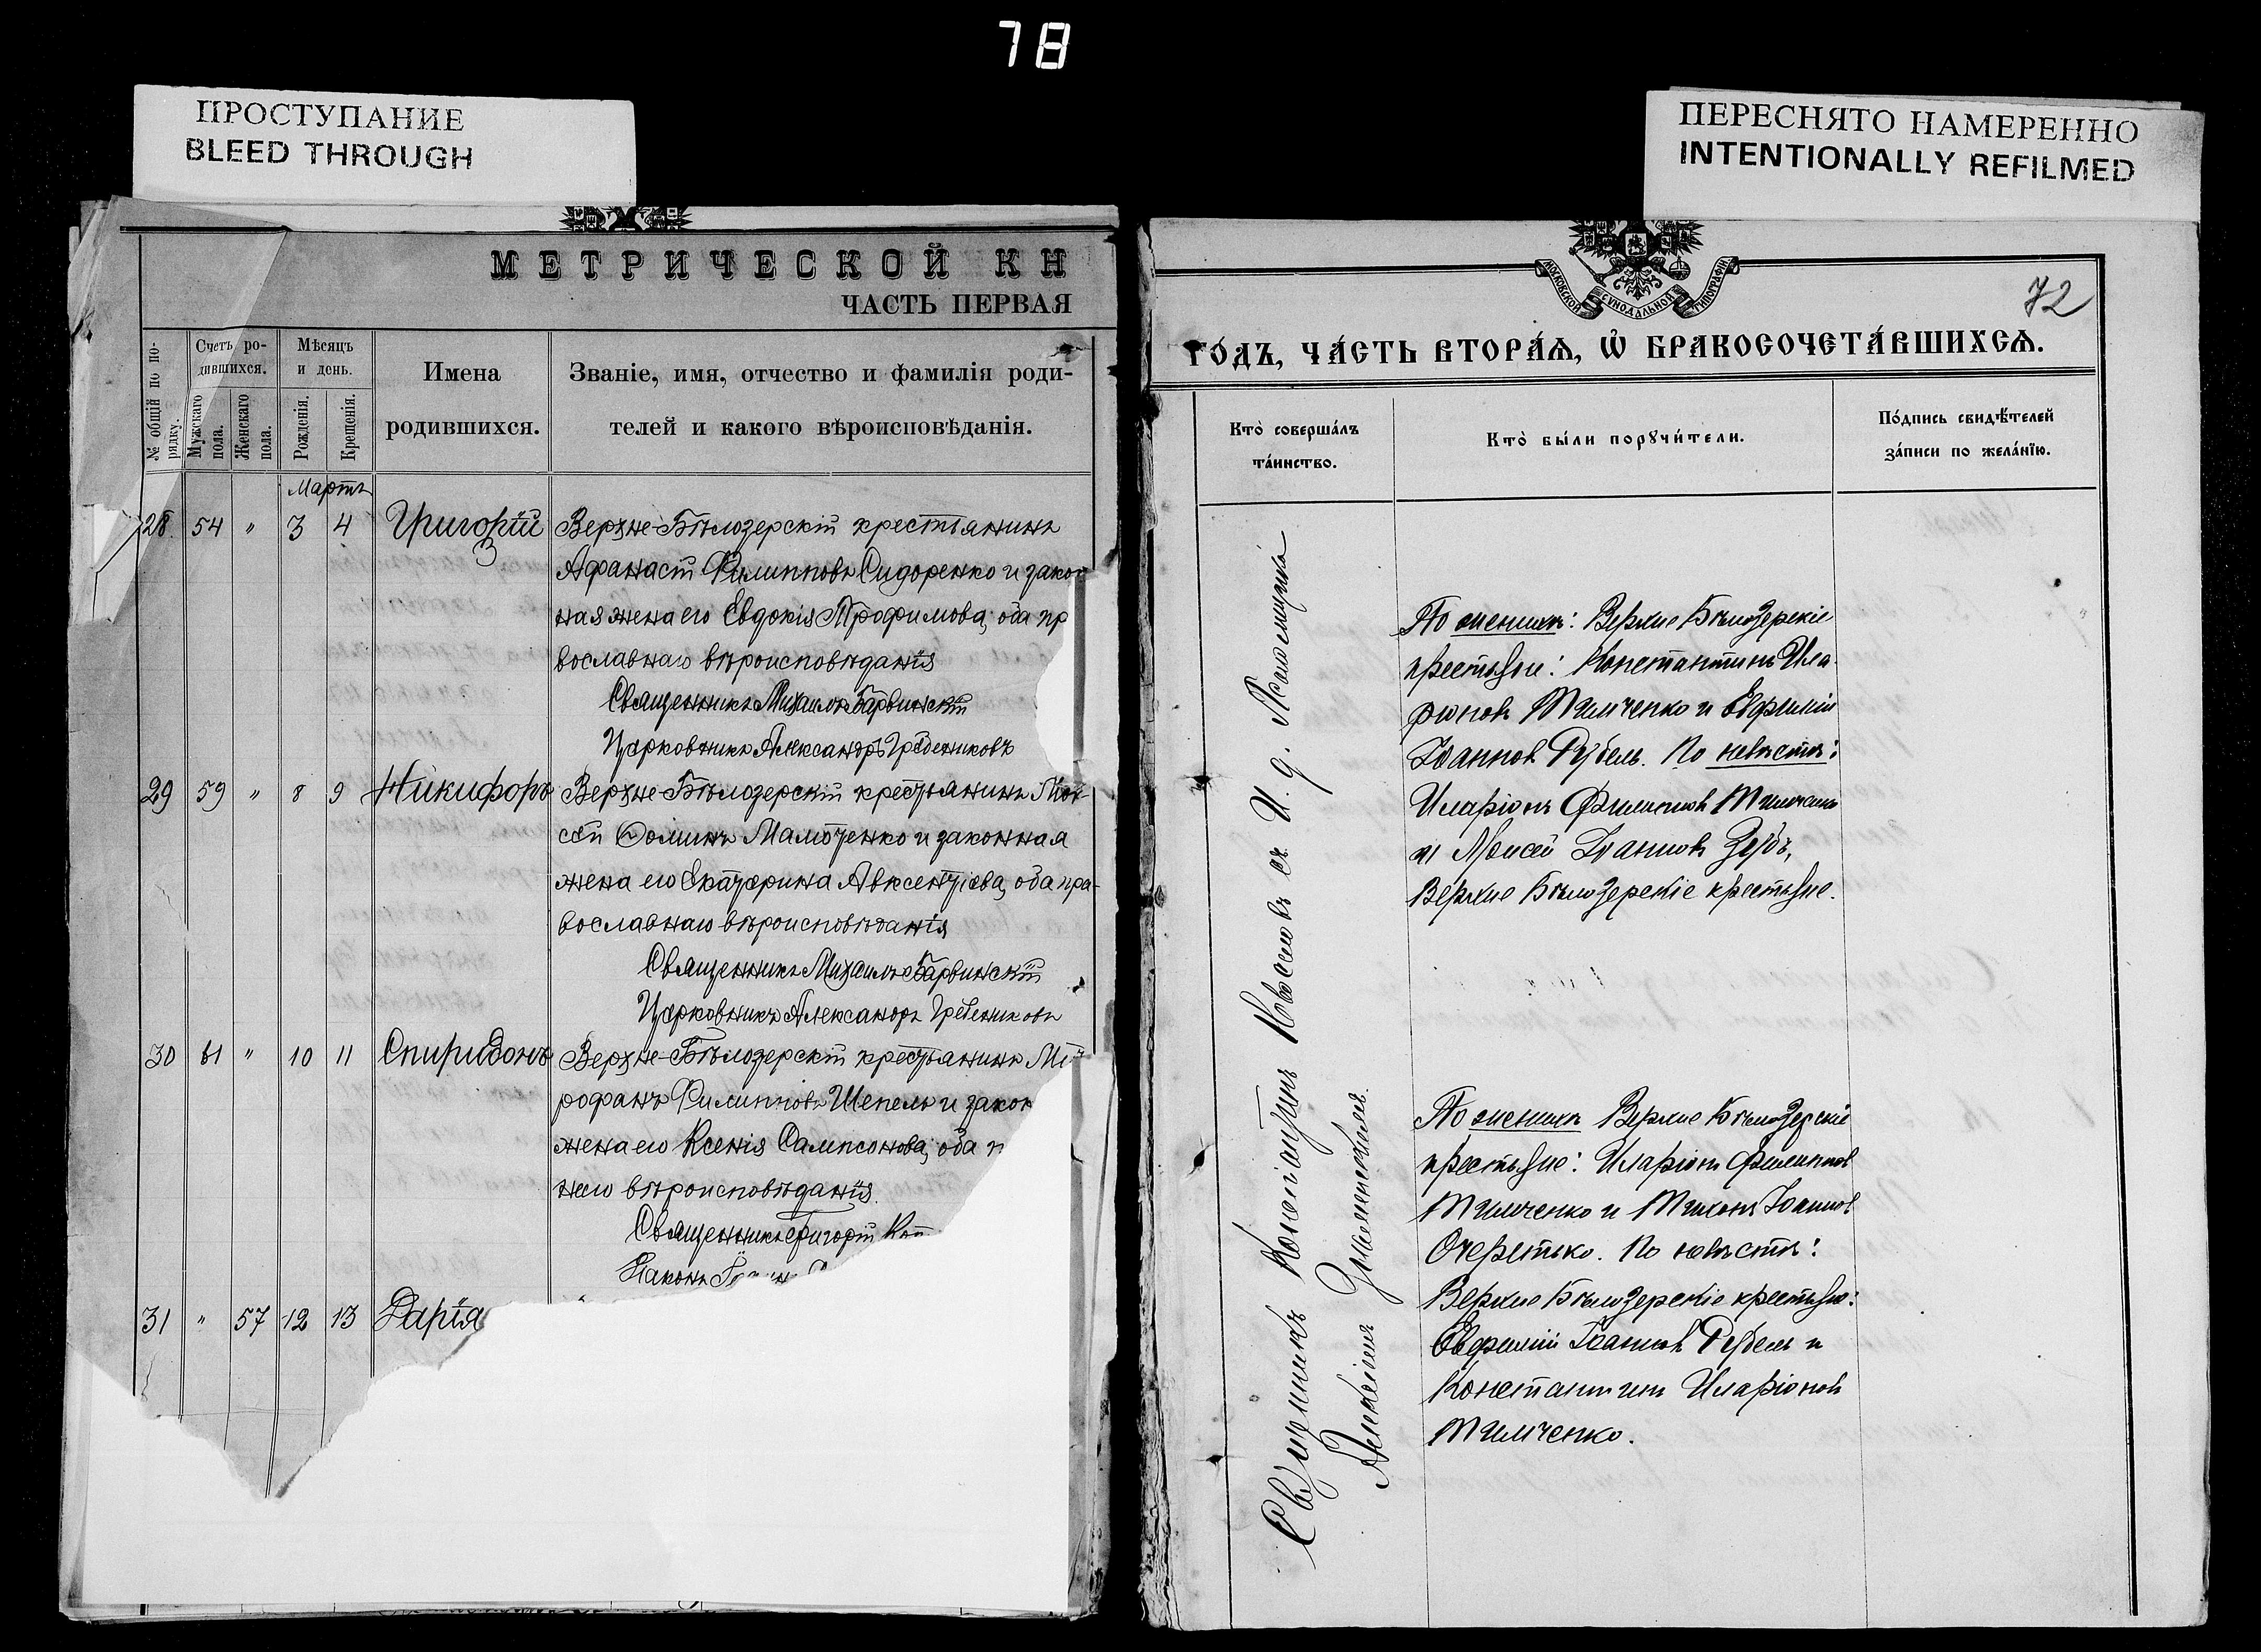 78
ПРОСТУПАНИЕ
BLEED THROUGH
ПЕРЕСНЯТО НАМЕРЕННО
INTENTIONALLY REFILMED
МЕТРИЧЕСКОЙ КН
ЧАСТЬ ПЕРВАЯ
№ общій по по-
рядку.
Счетъ ро-
дившихся.
Мужскаго
пола.
Женскаго
пола.
Мѣсяцъ
и день.
Рожденія.
Крещенія.
Имена
родившихся.
Званіе, имя, отчество и фамилія роди-
телей и какого вѣроисповѣданія.
Мартъ
28. 54 " 3 4 Григорій
Верхне-Бѣлозерскій крестьянинъ
Афанасій Филипповъ Сидоренко и закон
ная жена его Евдокія Трофимова, оба пр
вославнаго вѣроисповѣданія
Священникъ Михаилъ Барвинскій
Церковникъ Александръ Гребенниковъ
29 59 " 8 9 Никифоръ
Верхне-Бѣлозерскій крестьянинъ Мои-
сей Ѳоминъ и законная
жена его Екатерина Авксентіева, оба пра-
вославнаго вѣроисповѣданія
Священникъ Михаилъ Барвинскій
Церковникъ Александръ Гребениковъ
30 61 " 10 11 Спиридонъ
Верхне-Бѣлозерскій крестьянинъ Мит
рофанъ Филипповъ Шепель и закон
жена его Ксенія Сампсонова, оба п
наго вѣроисповѣданія.
Священникъ Григорій
Діаконъ
31 " 57 12 13 Дарія
МОСКОВСКОЙ СѴНОДАЛЬНОЙ ТИПОГРАФІИ
72
го́дъ, ча́сть втора́ѧ, ѡ҆ бракосочета́вшихсѧ.
Кто̀ соверша́лъ
та́инство.
Кто̀ бы́ли порꙋчи́тели.
По́дпись свидѣ́телей
за́писи по жела́нїю.
Священникъ Константинъ Новоселовъ съ И. д. Псаломщика
Алексіемъ
По женихѣ: Верхне Бѣлозерскіе
крестьяне: Константинъ Ила-
ріоновъ Тимченко и Евфимій
Іоанновъ Рубель. По невѣстѣ:
Иларіонъ Филипповъ Тимченко
и Моисей Іоанновъ Зубъ,
Верхне Бѣлозерскіе крестьяне.
По женихѣ Верхне Бѣлозерскіе
крестьяне: Иларіонъ Филипповъ
Тимченко и Тихонъ Іоанновъ
Очеретько. По невѣстѣ:
Верхне Бѣлозерскіе крестьяне:
Евфимій Іоанновъ Рубель и
Константинъ Иларіоновъ
Тимченко.